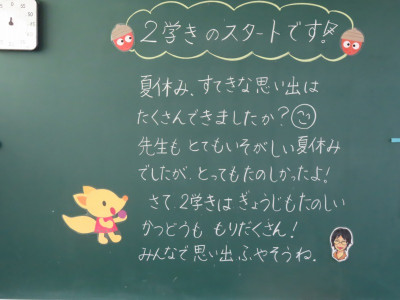 2学きのスタートです!
夏休み、すてきな思い出は
たくさんできましたか?
先生も とてもいそがしい夏休み
でしたが、とってもたのしかったよ!
さて、2学きは ぎょうじもたのしい
かつどうも もりだくさん!
みんなで思い出、ふやそうね.